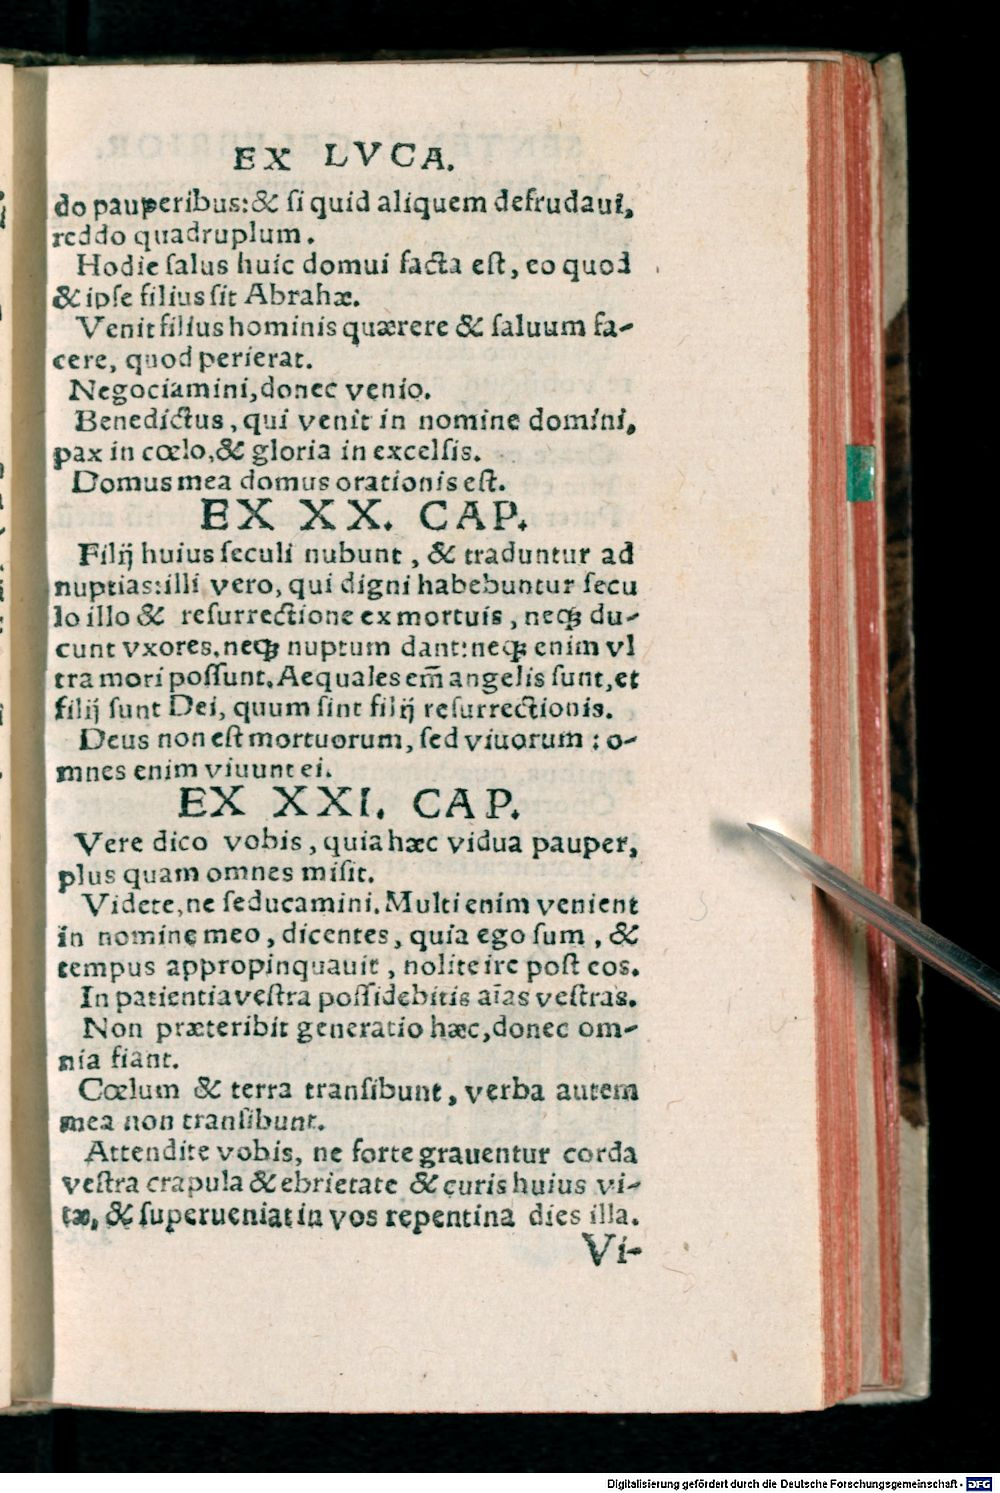 EX LVCA.
do pauperibus:& ſi quid aliquem defrudaui,
reddo quadruplum.
Hodie ſalus huic domui facta eſt, eo quod
& ipſe filius ſit Abrahæ.
Venit filius hominis quærere & ſaluum fa-
cere, quod perierat.
Negociamini, donec venio.
Benedictus, qui venit in nomine domini,
pax in cœlo, & gloria in excelſis.
Domus mea domus orationis eſt.
EX XX. CAP.
Filij huius ſeculi nubunt, & traduntur ad
nuptias: illi vero, qui digni habebuntur ſecu
lo illo & reſurrectione ex mortuis, neqꝫ du-
cunt vxores, neqꝫ nuptum dant: neqꝫ enim vl
tra mori poſſunt. Aequales em̄ angelis ſunt, et
filij ſunt Dei, quum ſint filij reſurrectionis.
Deus non eſt mortuorum, ſed viuorum : o-
mnes enim viuunt ei.
EX XXI. CAP.
Vere dico vobis, quia hæc vidua pauper,
plus quam omnes miſit.
Videte, ne ſeducamini. Multi enim venient
in nomine meo, dicentes, quia ego ſum, &
tempus appropinquauit, nolite ire poſt eos.
In patientia veſtra poſſidebitis aīas veſtras.
Non præteribit generatio hæc, donec om-
nia fiant.
Cœlum & terra tranſibunt, verba autem
mea non tranſibunt.
Attendite vobis, ne forte grauentur corda
veſtra crapula & ebrietate & curis huius vi-
tæ, & ſuperueniat in vos repentina dies illa.
Vi-
Digitalisierung gefördert durch die Deutsche Forschungsgemeinschaft - DFG